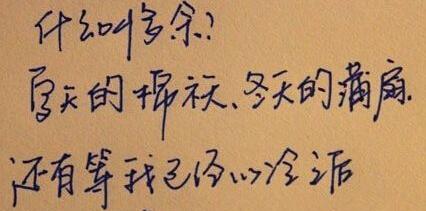 什么叫多余?
夏天的棉袄、冬天的蒲扇.
还有等我已经心冷之后